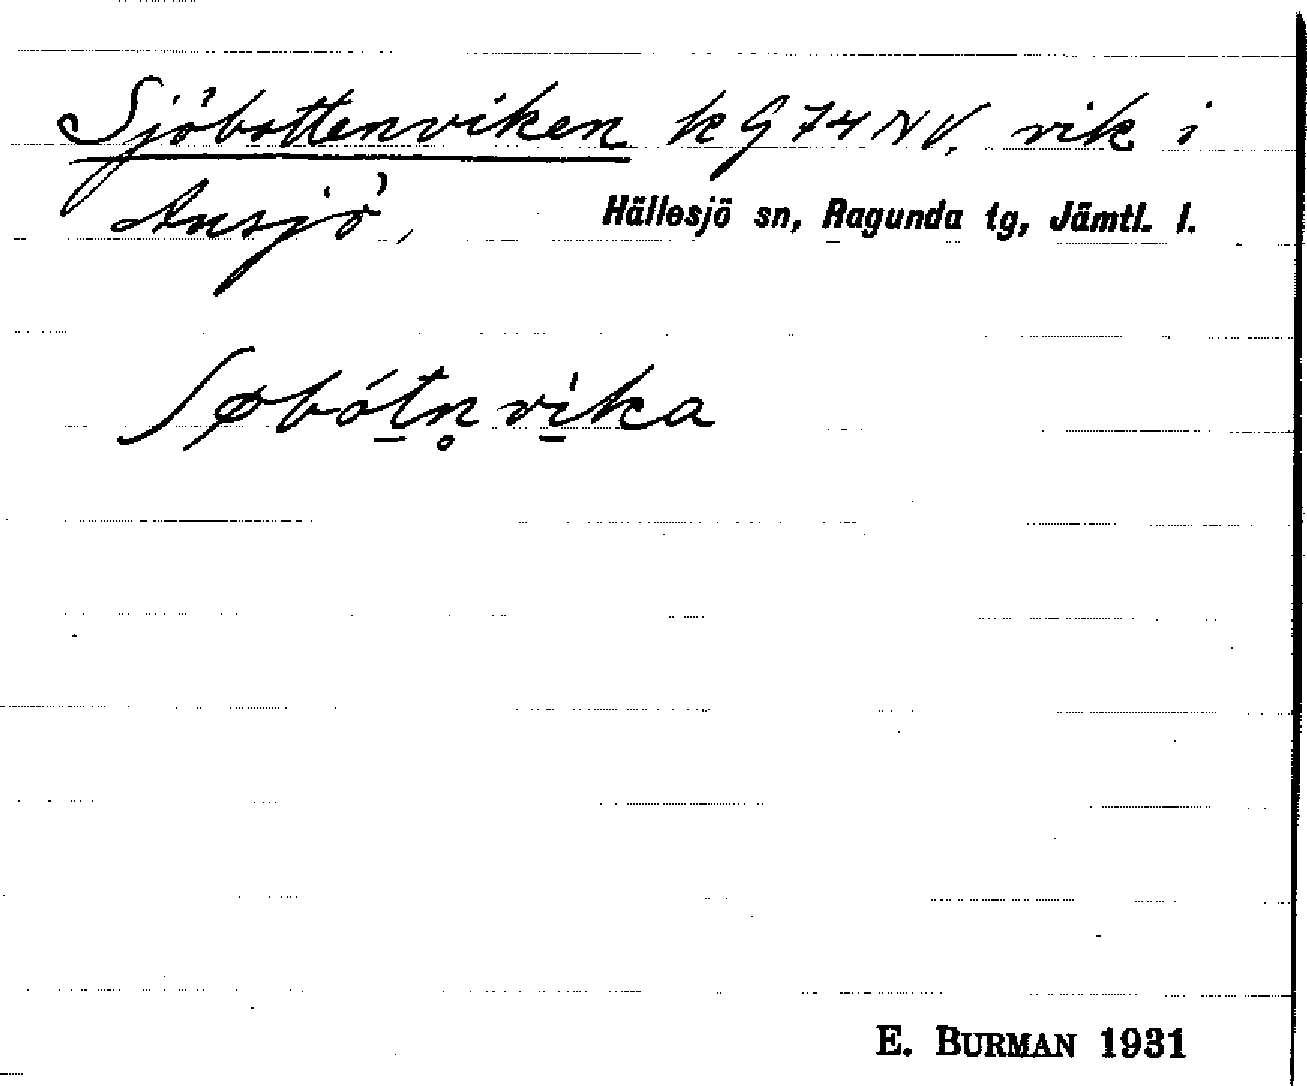 Sjöbottenviken kG 74 NV. vik i
Ansjö,
Hällesjö sn, Ragunda tg, Jämtl. l.
Søbót̠n̥vi̠ka
E. BURMAN 1931